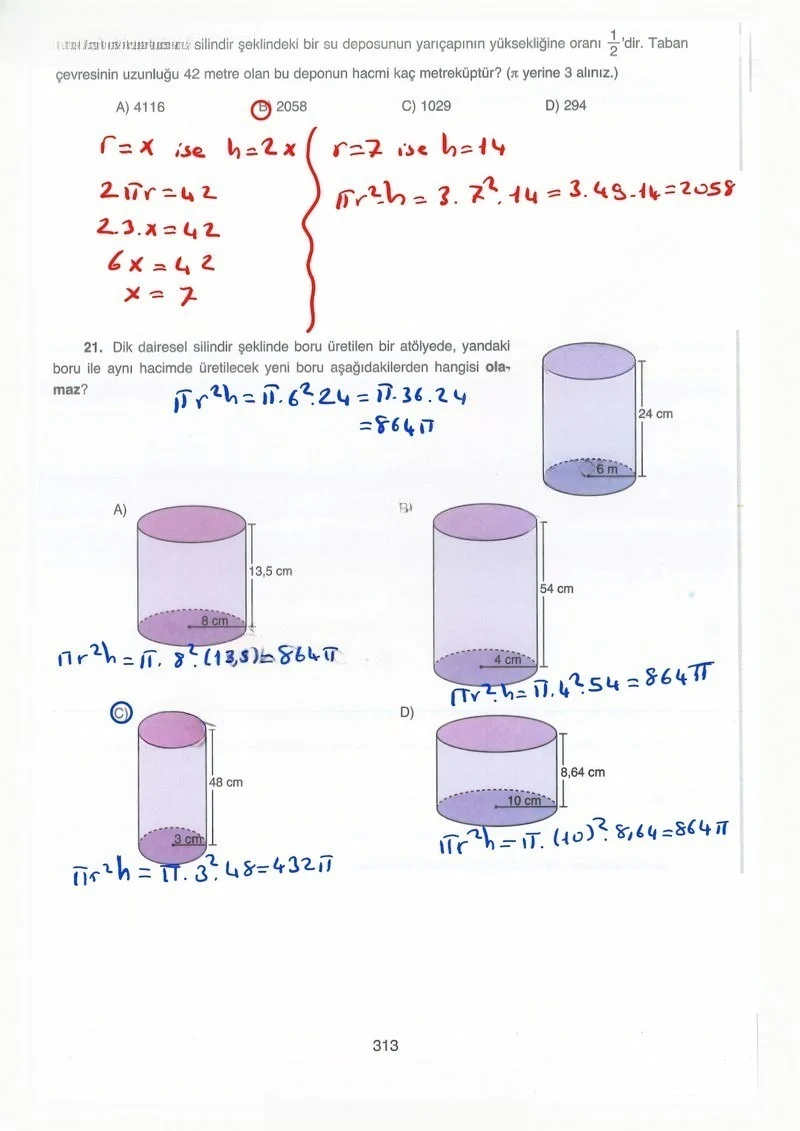 silindir şeklindeki bir su deposunun yarıçapının yüksekliğine oranı 1/2'dir. Taban
çevresinin uzunluğu 42 metre olan bu deponun hacmi kaç metreküptür? (π yerine 3 alınız.)
A) 4116 B) 2058 C) 1029 D) 294
r = x ise h = 2x
2πr = 42
2.3.x = 42
6x = 42
x = 7
r=7 ise h=14
πr².h = 3. 7². 14 = 3. 49.14 = 2058
21. Dik dairesel silindir şeklinde boru üretilen bir atölyede, yandaki
boru ile aynı hacimde üretilecek yeni boru aşağıdakilerden hangisi ola-
maz?
πr²h = π.6².24 = π.36.24
=864π
24 cm
6 m
A)
13,5 cm
8 cm
πr²h = π. 8².(13,5)=864π
B)
54 cm
4 cm
πr².h = π.4².54 = 864π
C)
48 cm
3 cm
πr²h = π.3².48=432π
D)
8,64 cm
10 cm
πr²h = π. (10)². 8,64=864π
313